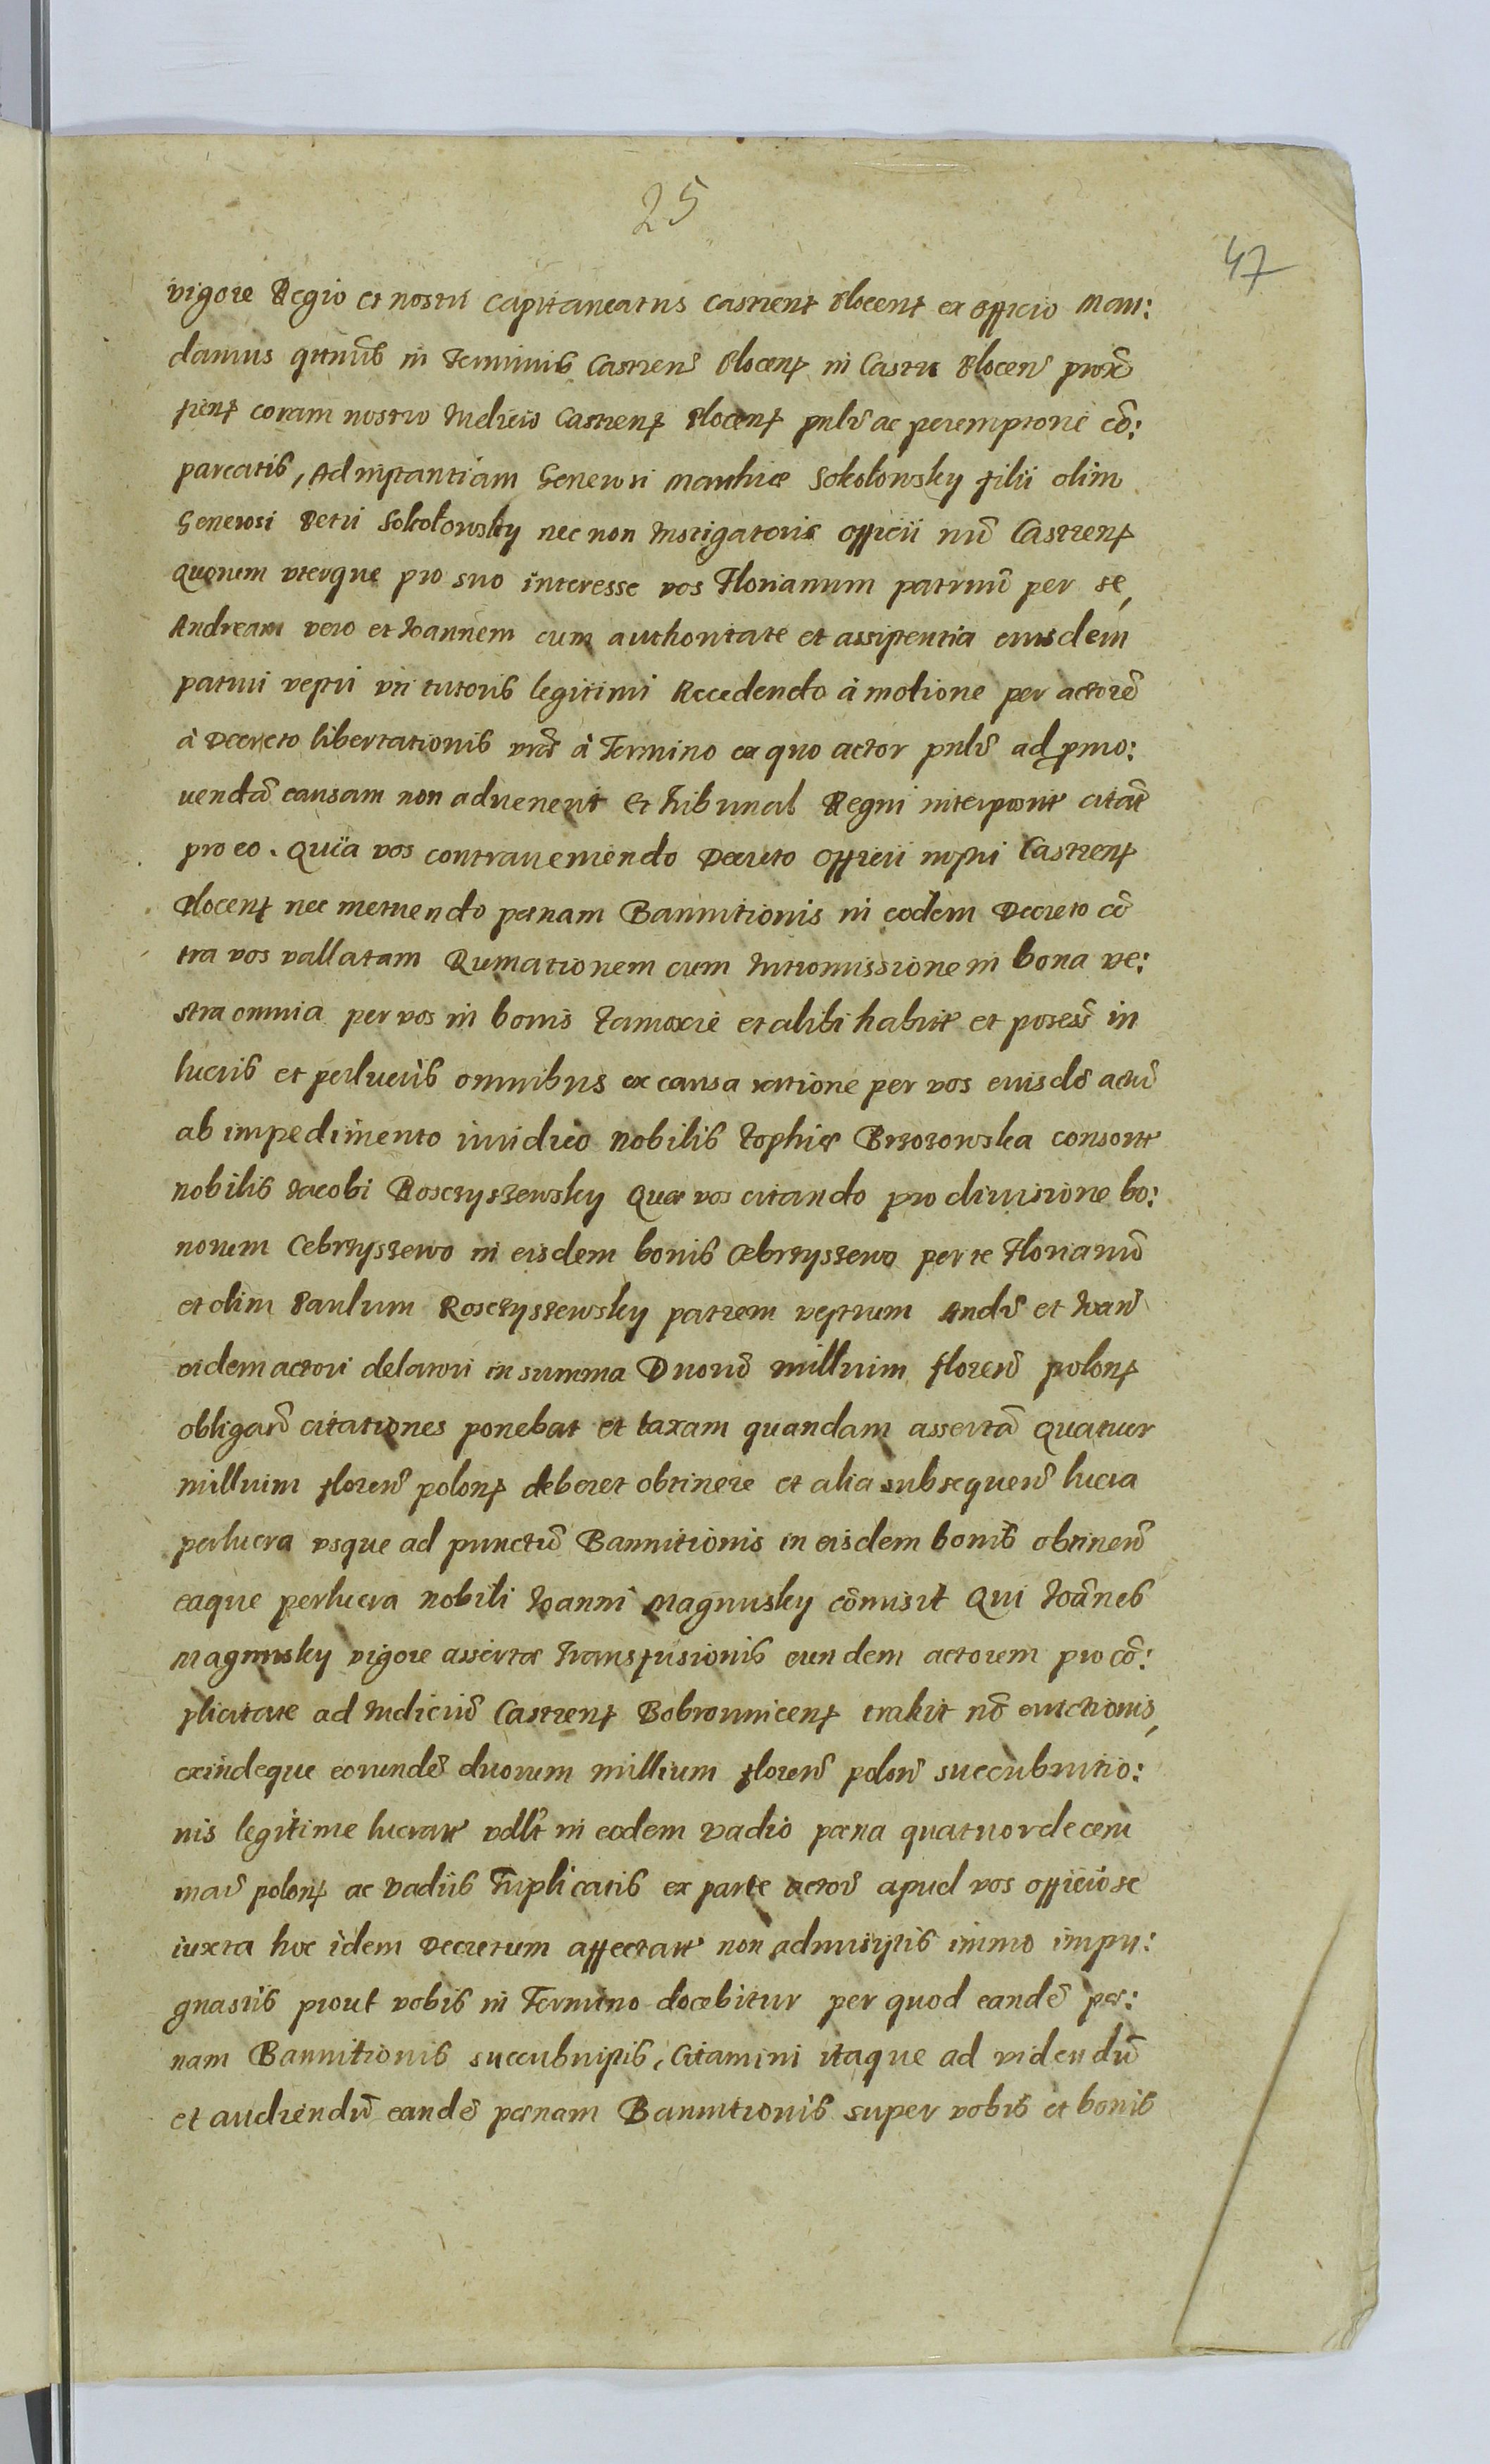 25
47
vigore Regio et nostri Capitaneatus Castrens Plocens ex officio Man:
damus qtnus in Terminis Castren Plocens in Castro Plocen prox
fiens coram nostro Iudicio Castrens Plocens pnlr ac peremptorie cō:
pareatis, Ad instantiam Generosi Matthiæ Sokołowsky filii olim
Generosi Petri Sokołowsky nec non Instigatoris officii nrī Castrens
quorum vterque pro suo interesse vos Florianum patruū per se,
Andream vero et Ioannem cum authoritate et assistentia eiusdem
patrui vestri vti tutoris legitimi Recedendo à motione per actorē
à Decreto libertationis vrae à Termino ex quo actor pnlr ad pmo:
uendā causam non aduenerit Et Tribunal Regni interposit citāt
pro eo. Quia vos contraueniendo Decreto officii nostri Castrens
Plocens nec metuendo pœnam Bannitionis in eodem Decreto cō
tra vos vallatam Rumationem cum Intromissione in bona ve:
stra omnia per vos in bonis Zamoscie et alibi habit et posess in
lucris et perlucris omnibus ex causa ratione per vos eiusdē actū
ab impedimento iuridico nobilis Zophiæ Brzozowska consort
nobilis Iacobi Rosczyszewsky quæ vos citando pro diuisione bo:
norum Cebrzyszewo in eisdem bonis Cebrzyszewo per te Florianū
et olim Paulum Rosczyszewsky patrem vestrum Andr et Ioan
eidem actori delatori in summa Duorū millium floren polons
obligan citationes ponebat et taxam quandam assertā quatuor
millium floren polons deberet obtinere et alia subsequen lucra
perlucra vsque ad punctū Bannitionis in eisdem bonis obtinen
eaque perlucra nobili Ioanni Magnusky cōmisit Qui Ioānes
Magnusky vigore assertæ Transfusionis eundem actorem pro cō:
plicitate ad Iudiciū Castrens Bobrounicens trakit nō euictionis,
exindeque eorundē duorum millium floren polon succubutio:
nis legitime lucrat vdlt in eodem vadio pœna quatuordecem
mar polons ac vadiis Triplicatis ex parte actor apud vos officiose
iuxta hoc idem Decretum affectatt non admisistis immo impu:
gnastis prout vobis in Termino docebitur per quod eandē pœ:
nam Bannitionis succubuistis, Citamini itaque ad videndū
et audiendū eandē pœnam Bannitionis super vobis et bonis